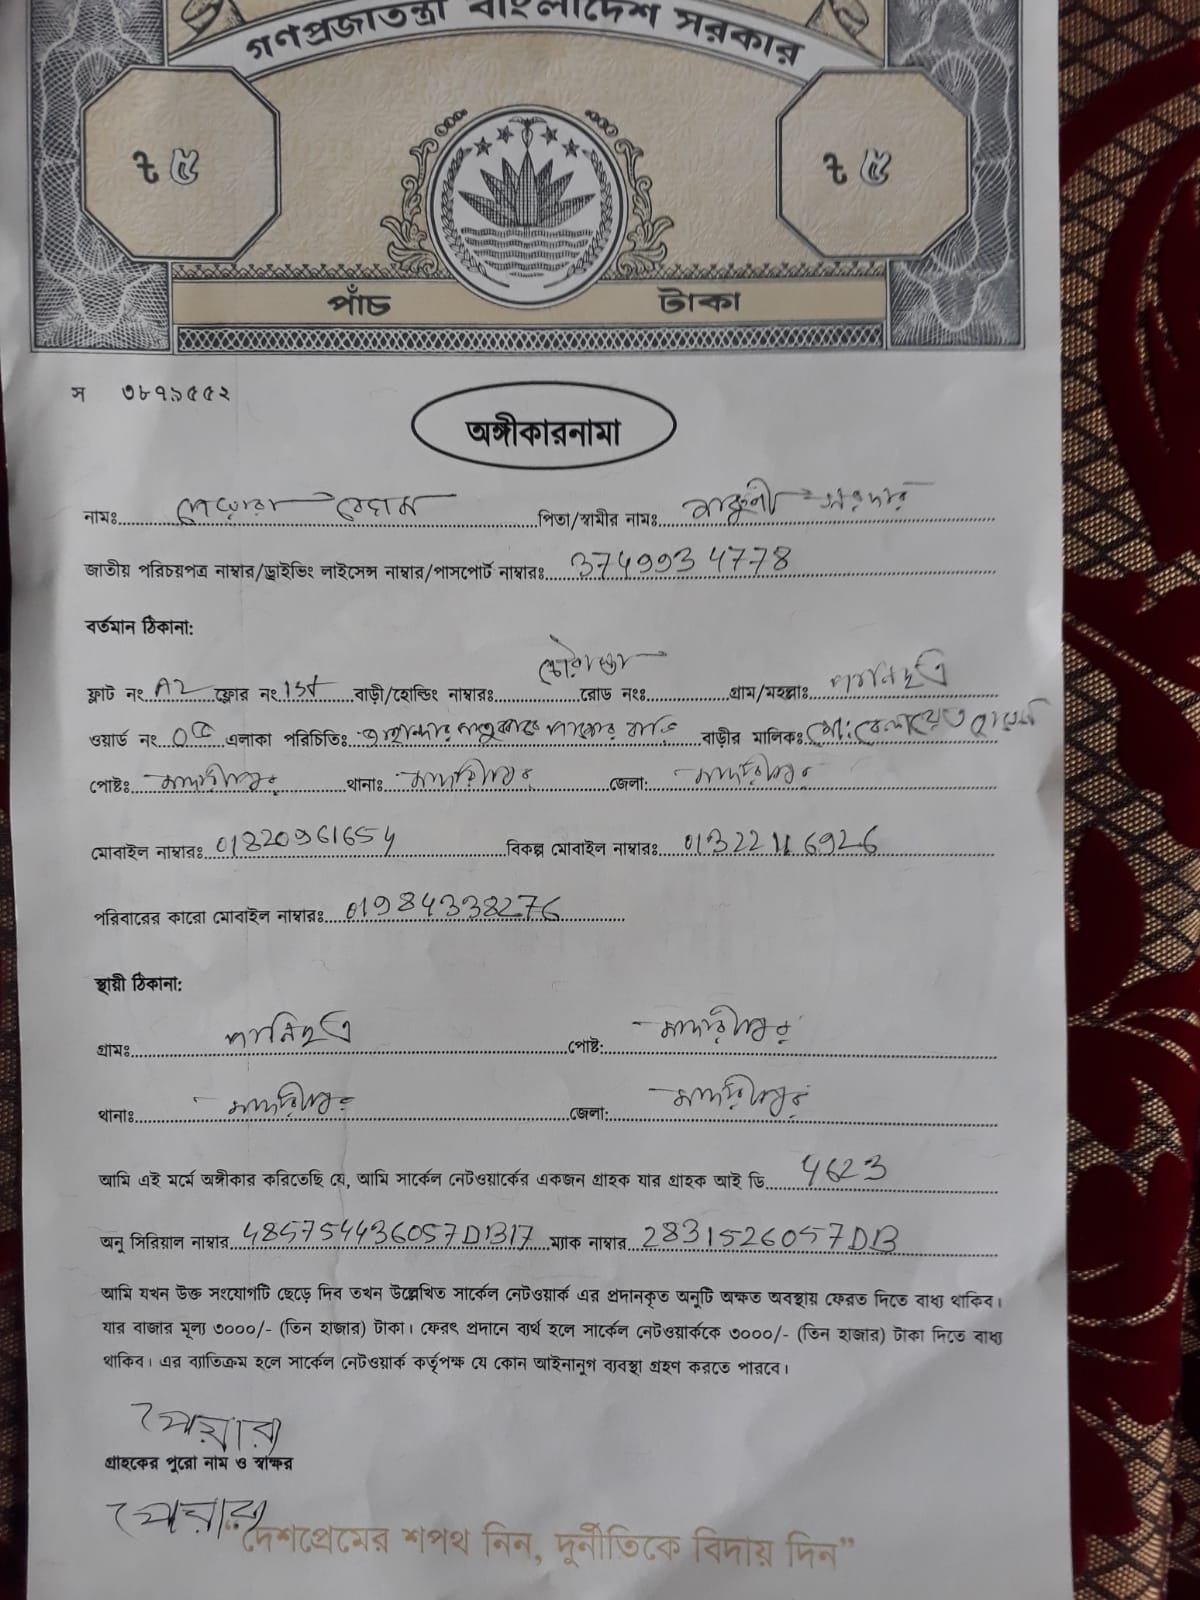 গণপ্রজাতন্ত্রী বাংলাদেশ সরকার
৳ ৫ ৳ ৫
পাঁচ টাকা
স ৩৮৭৯৫৫২
অঙ্গীকারনামা
নামঃ পেয়ারা বেগম পিতা/স্বামীর নামঃ সরদার
জাতীয় পরিচয়পত্র নাম্বার/ড্রাইভিং লাইসেন্স নাম্বার/পাসপোর্ট নাম্বারঃ 3749934778
বর্তমান ঠিকানা:
ফ্লাট নং A2 ফ্লোর নং 1st বাড়ী/হোল্ডিং নাম্বারঃ রোড নংঃ গ্রাম/মহল্লাঃ পানিছত্র
ওয়ার্ড নং এলাকা পরিচিতিঃ বাড়ীর মালিকঃ মো: বেলায়েত হোসেন
পোষ্টঃ মাদারীপুর থানাঃ মাদারীপুর জেলা: মাদারীপুর
মোবাইল নাম্বারঃ 01820961654 বিকল্প মোবাইল নাম্বারঃ 01322116926
পরিবারের কারো মোবাইল নাম্বারঃ 01984338276
স্থায়ী ঠিকানা:
গ্রামঃ পানিছত্র পোষ্ট: মাদারীপুর
থানাঃ মাদারীপুর জেলা: মাদারীপুর
আমি এই মর্মে অঙ্গীকার করিতেছি যে, আমি সার্কেল নেটওয়ার্কের একজন গ্রাহক যার গ্রাহক আই ডি 4623
অনু সিরিয়াল নাম্বার 485754436057DB17 ম্যাক নাম্বার 2831526057DB
আমি যখন উক্ত সংযোগটি ছেড়ে দিব তখন উল্লেখিত সার্কেল নেটওয়ার্ক এর প্রদানকৃত অনুটি অক্ষত অবস্থায় ফেরত দিতে বাধ্য থাকিব।
যার বাজার মূল্য ৩০০০/- (তিন হাজার) টাকা। ফেরৎ প্রদানে ব্যর্থ হলে সার্কেল নেটওয়ার্ককে ৩০০০/- (তিন হাজার) টাকা দিতে বাধ্য
থাকিব। এর ব্যাতিক্রম হলে সার্কেল নেটওয়ার্ক কর্তৃপক্ষ যে কোন আইনানুগ ব্যবস্থা গ্রহণ করতে পারবে।
পেয়ারা
গ্রাহকের পুরো নাম ও স্বাক্ষর
পেয়ারা
“দেশপ্রেমের শপথ নিন, দুর্নীতিকে বিদায় দিন”